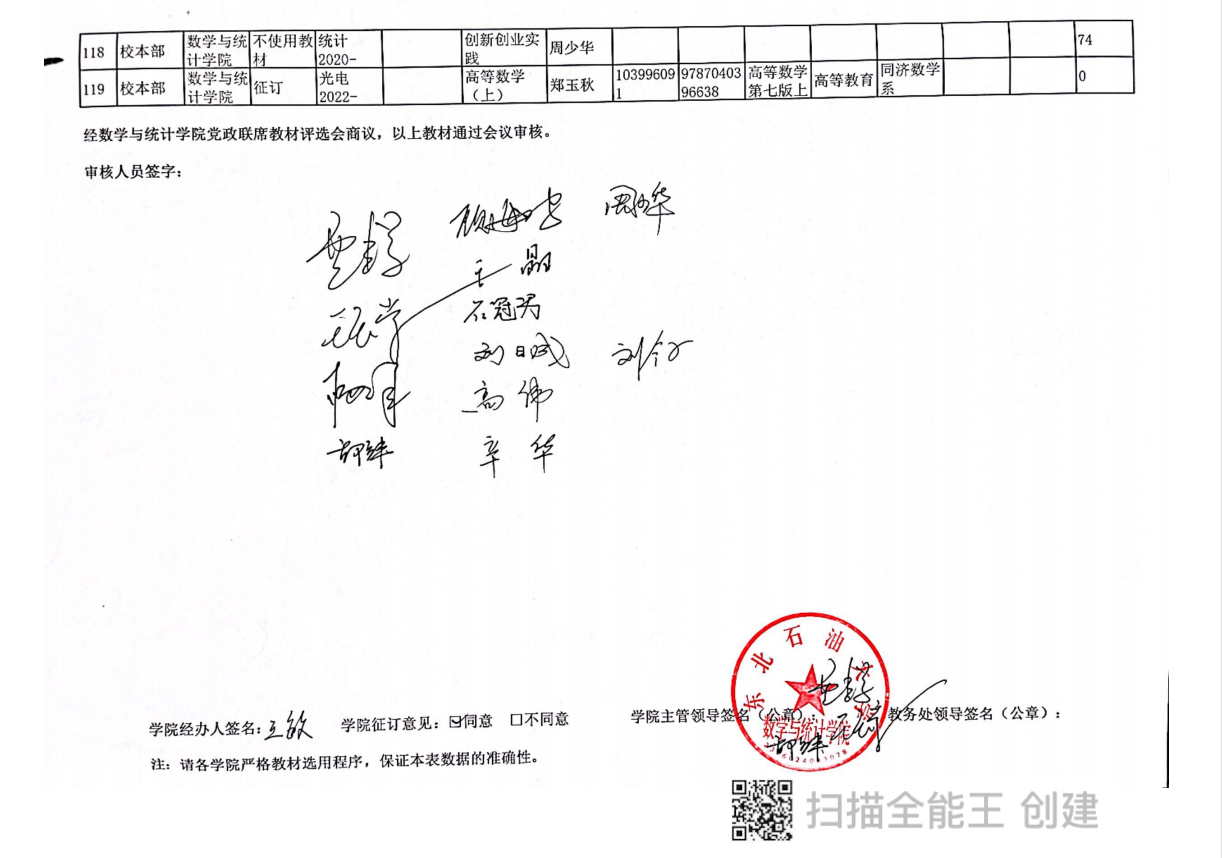 118 校本部 数学与统计学院 不使用教材 统计2020- 创新创业实践 周少华 74
119 校本部 数学与统计学院 征订 光电2022- 高等数学（上） 郑玉秋 103996091 9787040396638 高等数学第七版上 高等教育 同济数学系 0
经数学与统计学院党政联席教材评选会商议，以上教材通过会议审核。
审核人员签字：
周少华
王晶
石冠男
刘日成
高伟
辛华
东北石油大学
数学与统计学院
学院经办人签名：王敏 学院征订意见：☑同意 □不同意 学院主管领导签名（公章）： 教务处领导签名（公章）：
注：请各学院严格教材选用程序，保证本表数据的准确性。
扫描全能王 创建